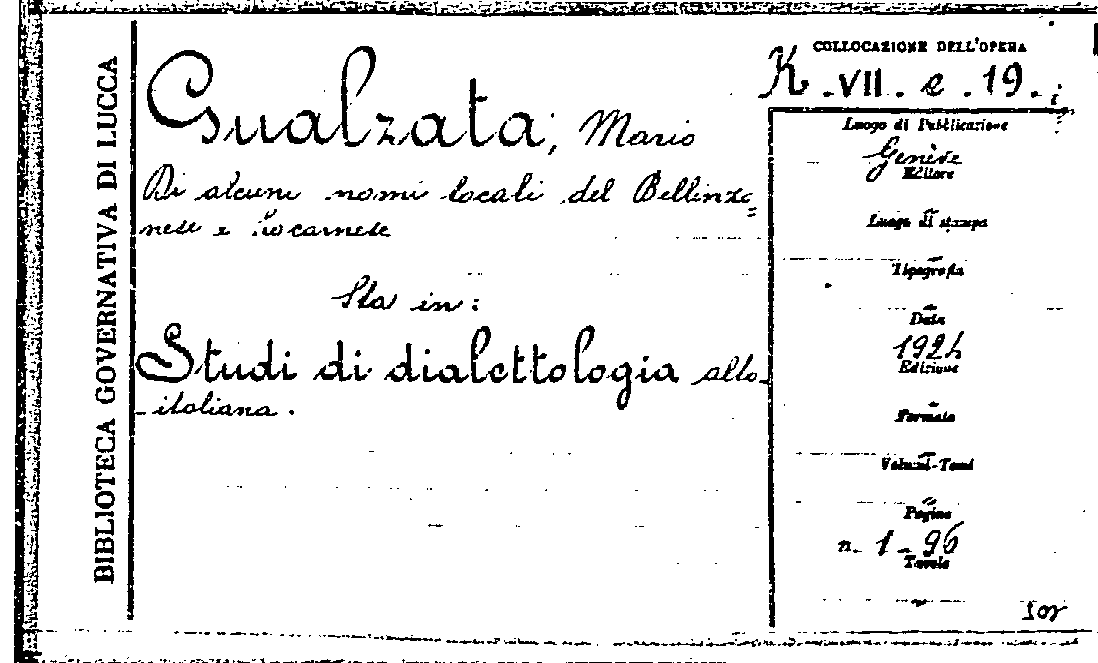 BIBLIOTECA GOVERNATIVA DI LUCCA
Gualzata, Mario
Di alcuni nomi locali del Bellinzo=
nese e Locarnese
Sta in:
Studi di dialettologia alto-
-italiana.
COLLOCAZIONE DELL'OPERA
K.VII.e.19.
Luogo di Pubblicazione
Genève
Editore
Luogo di stampa
Tipografia
Data
1924
Edizione
Formato
Volumi-Tomi
Pagine
n. 1-96
Tavole